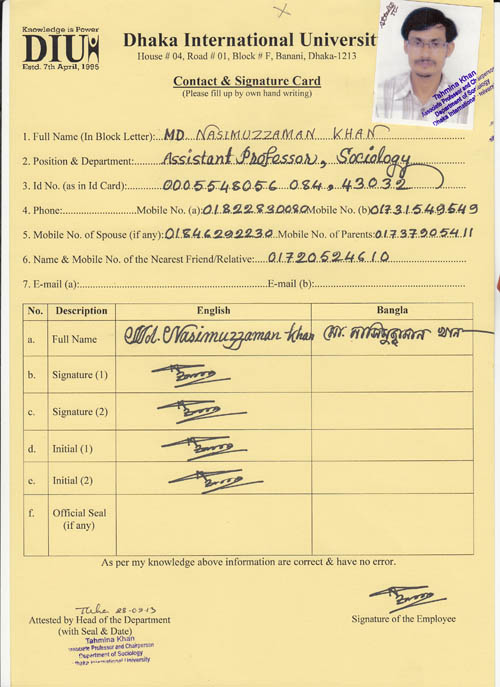 Knowledge is Power
DIU
Estd. 7th April, 1995
Dhaka International University
House # 04, Road # 01, Block # F, Banani, Dhaka-1213
Contact & Signature Card
(Please fill up by own hand writing)
Tahmina Khan
Associate Professor and Chairperson
Department of Sociology
Dhaka International University
1. Full Name (In Block Letter): MD NASIMUZZAMAN KHAN
2. Position & Department: Assistant Professor, Sociology
3. Id No. (as in Id Card): 0005548056 084, 43032
4. Phone: Mobile No. (a): 01822830080 Mobile No. (b) 01731549549
5. Mobile No. of Spouse (if any): 01846292230 Mobile No. of Parents: 01737905411
6. Name & Mobile No. of the Nearest Friend/Relative: 01720524610
7. E-mail (a): E-mail (b):
No. Description English Bangla
a. Full Name Md. Nasimuzzaman Khan মো. নাসিমুজ্জামান খান
b. Signature (1)
c. Signature (2)
d. Initial (1)
e. Initial (2)
f. Official Seal
(if any)
As per my knowledge above information are correct & have no error.
Attested by Head of the Department
(with Seal & Date)
Signature of the Employee
Tahmina Khan
Associate Professor and Chairperson
Department of Sociology
Dhaka International University